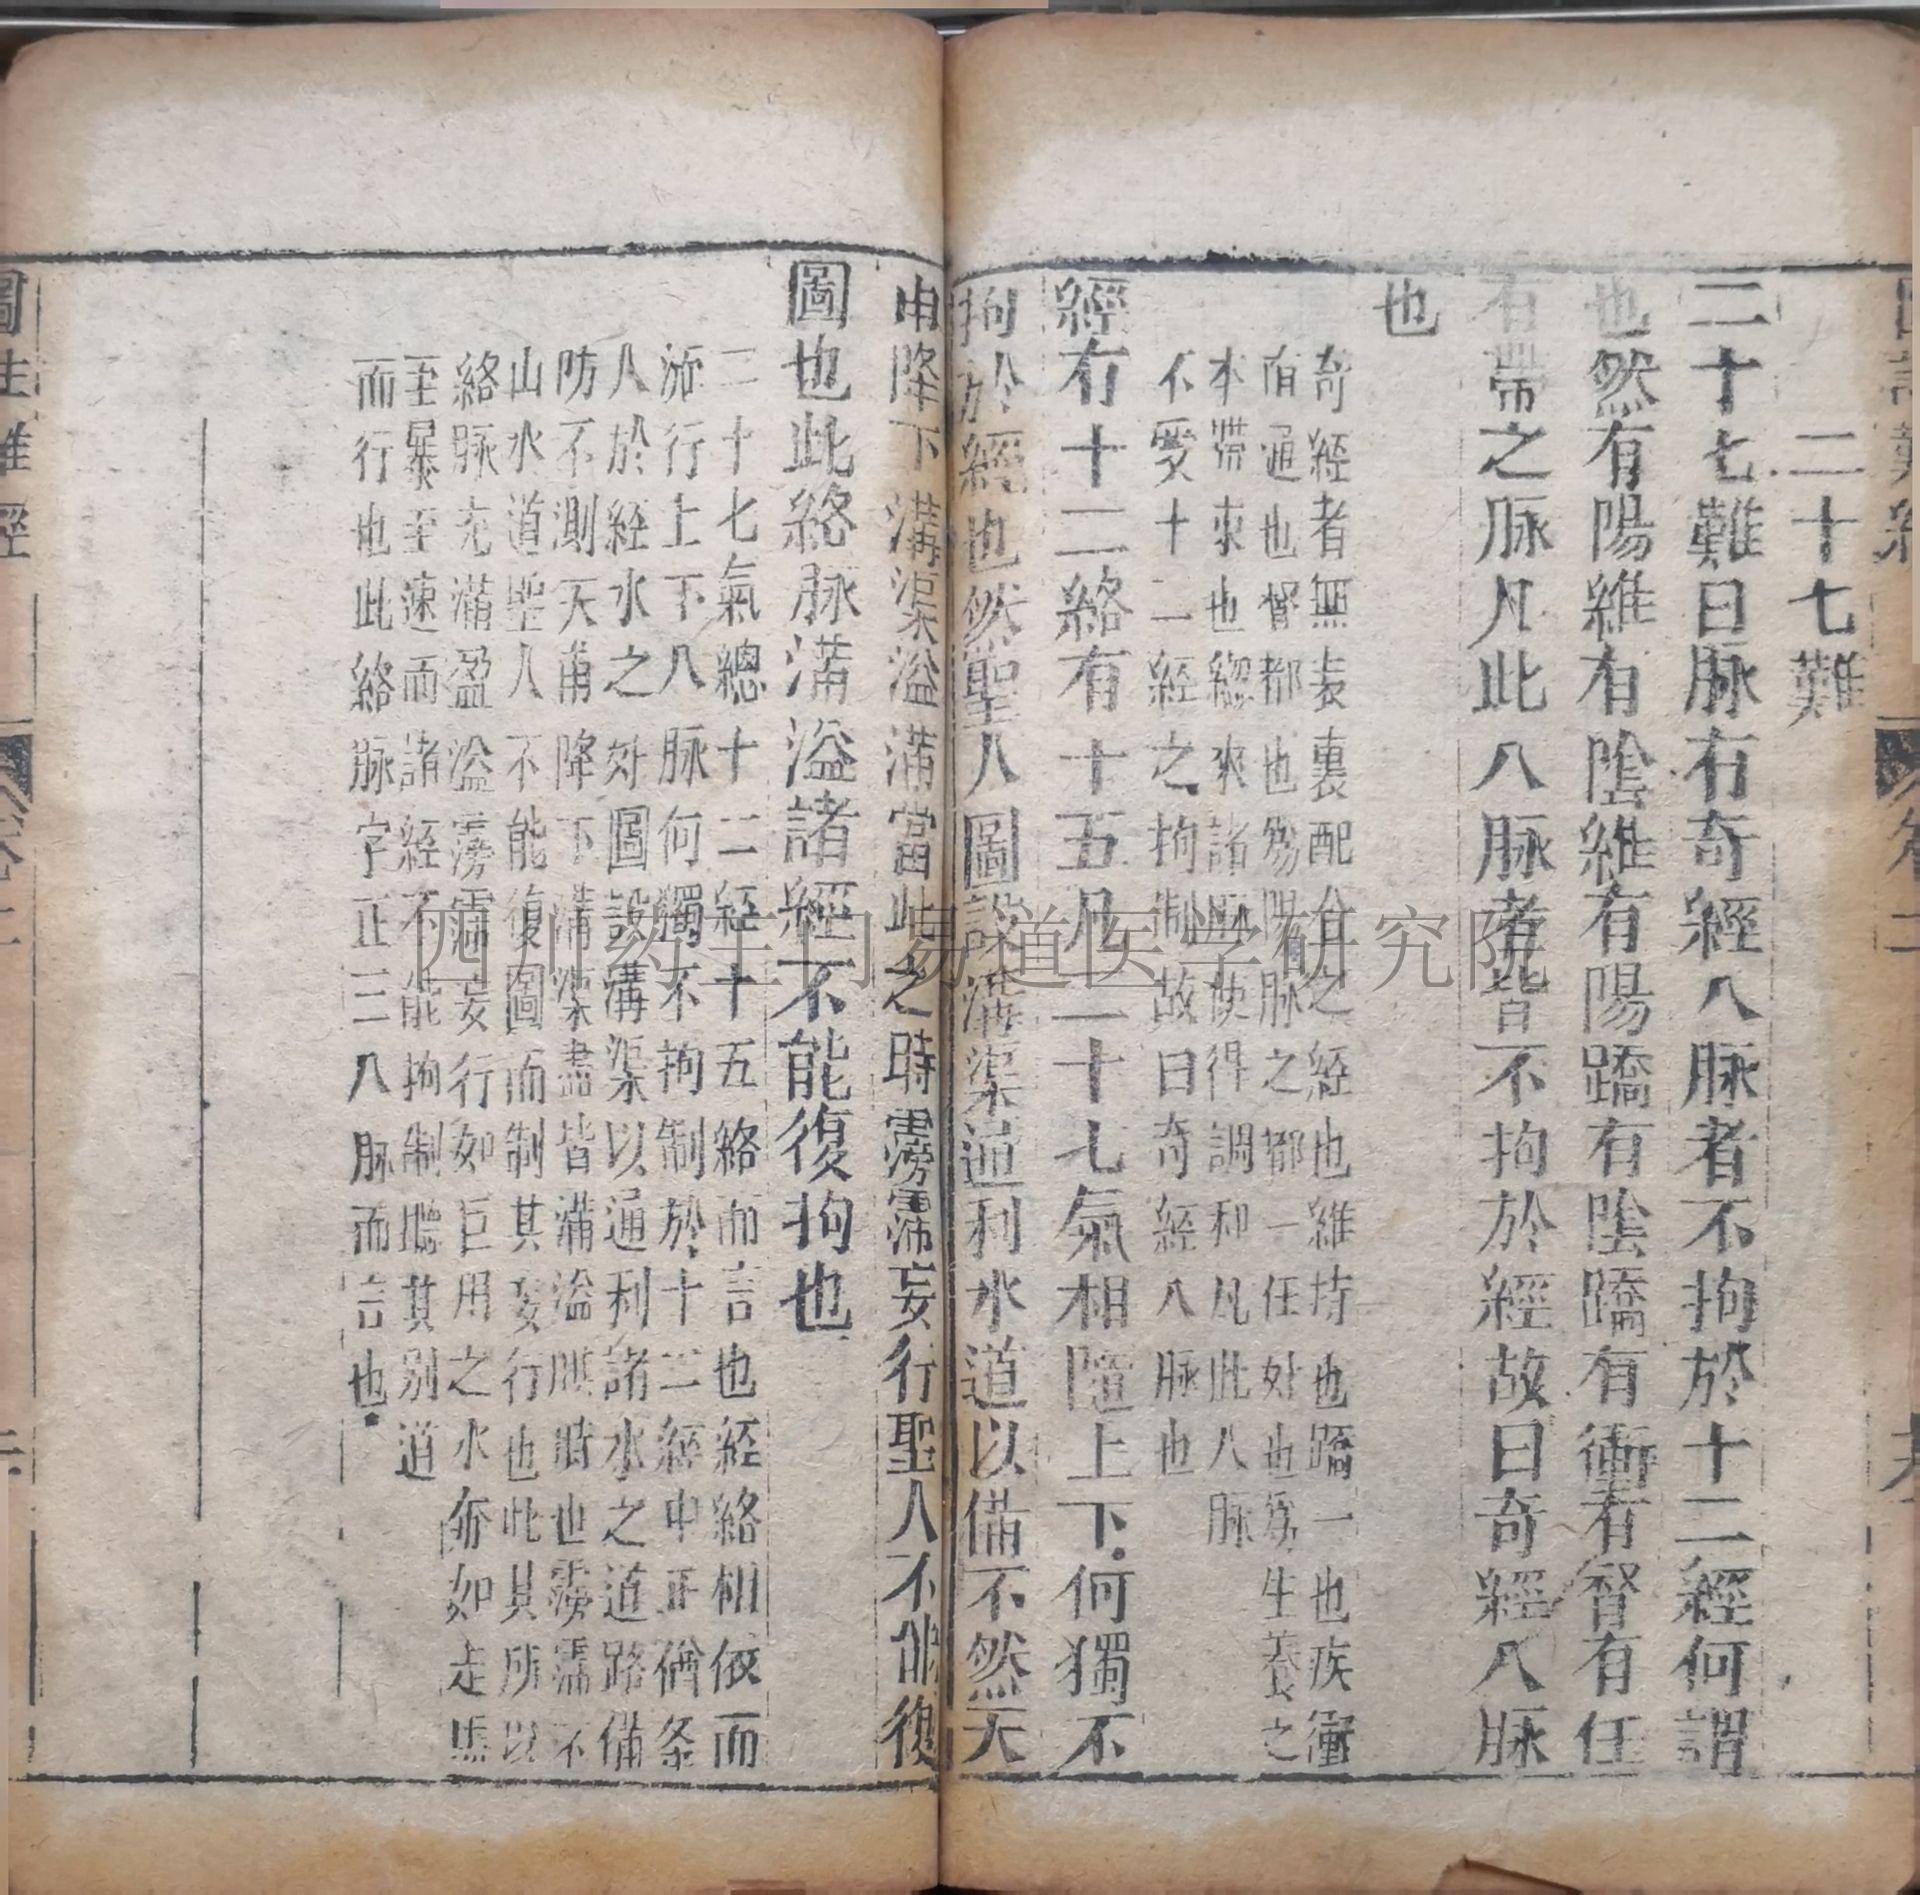 二十七難
二十七難曰脉有奇經八脉者不拘於十二經何謂
也然有陽維有陰維有陽蹻有陰蹻有衝有督有任
有帶之脉凡此八脉者皆不拘於經故曰奇經八脉
也
奇經者無表裏配合之經也維持也蹻一也疾衝
直通也督都也為陽脉之都一任处也為生养之
本帶束也總束諸脉使得調和凡此八脉
不受十二經之拘制故曰奇經八脉也
經有十二絡有十五凡二十七氣相隨上下何獨不
拘於經也然聖人圖設溝渠通利水道以備不然天
雨降下溝渠溢滿當此之時霶霈妄行聖人不能復
圖也此絡脉滿溢諸經不能復拘也
二十七氣總十二經十五絡而言也經絡相依而
流行上下八脉何獨不拘制於十二經中正猶条
八於經水之外圖設溝渠以通利諸水之道路備
防不測天雨降下溝渠盡皆滿溢此時也霶霈不
山水道聖人不能復圖而制其妄行也此其所以
絡脉充滿盈溢霶霈妄行如巨用之水奔如走馬
至暴至速而諸經不能拘制聽其别道
而行也此絡脉字正三八脉而言也
圖註難經
卷二
四川药王门易道医学研究院